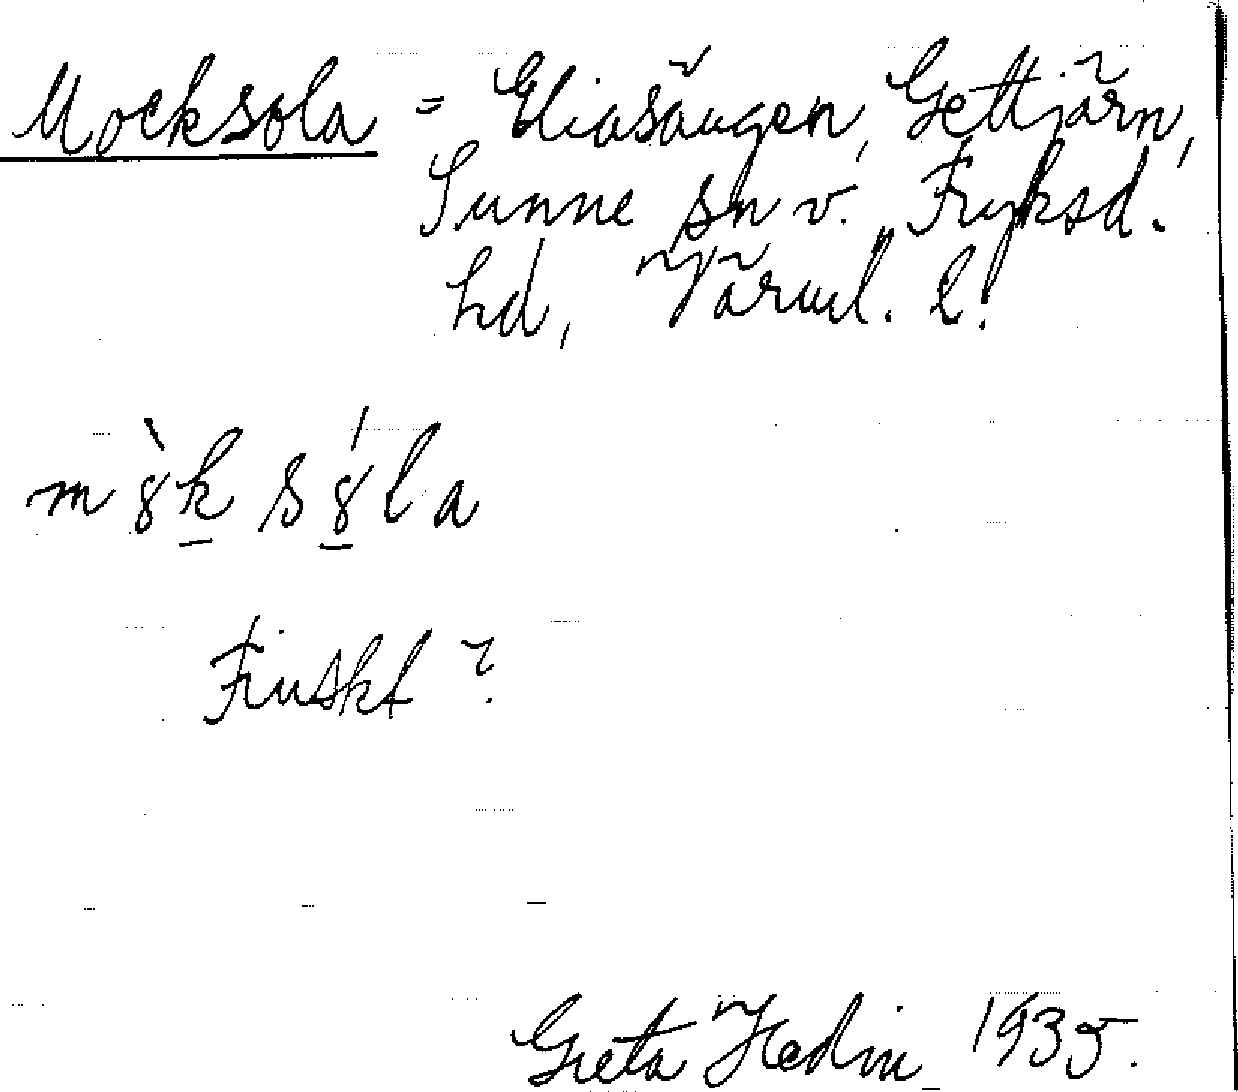 Mocksola = Eliasängen, Gettjärn,
Sunne sn v. Fryksd.
hd, Värml. l.
m8̀k s8́la
Finskt?
Greta Hedin 1935.